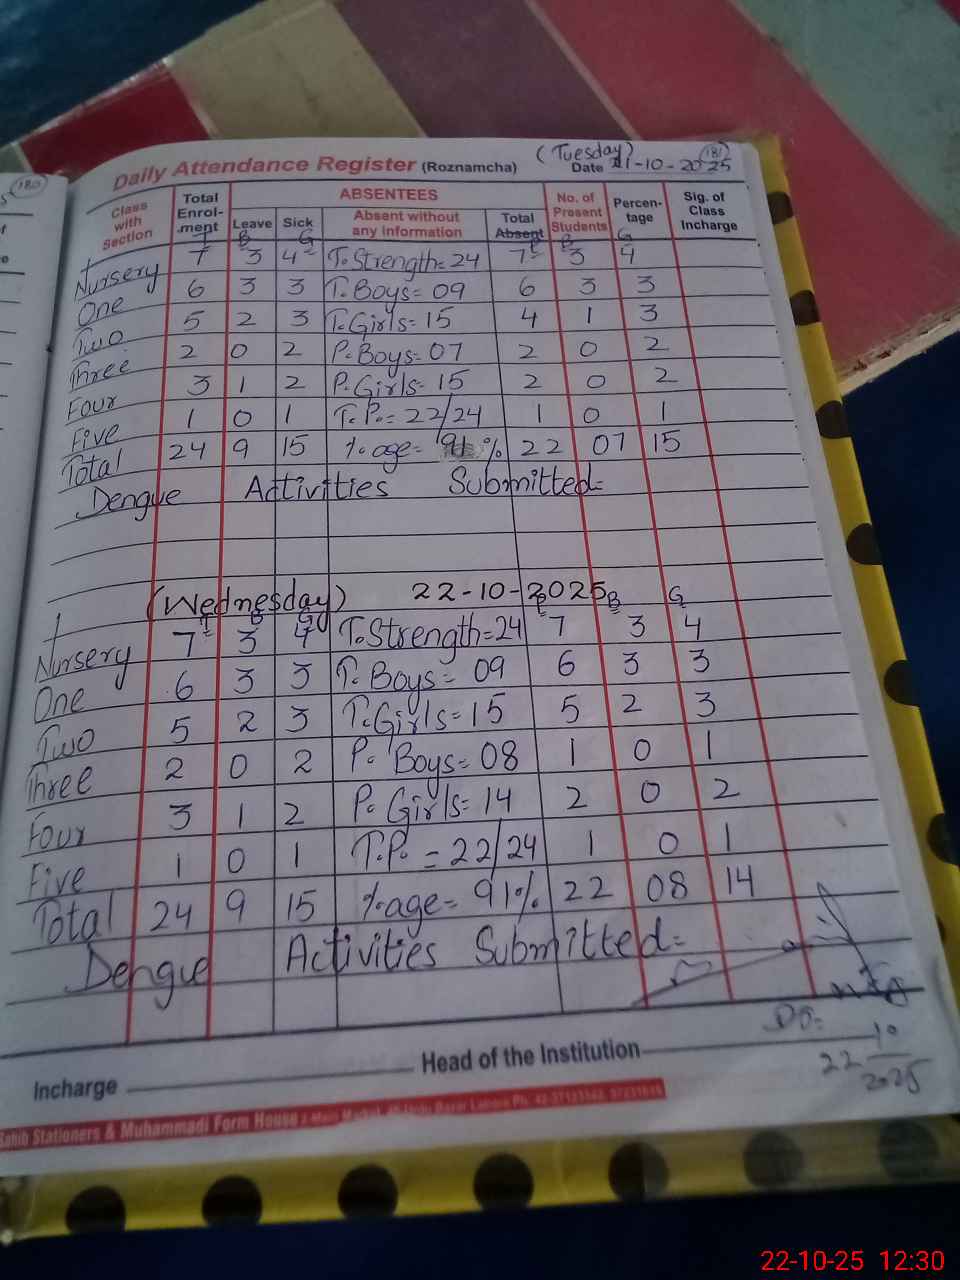 180
(Tuesday) 181
Daily Attendance Register (Roznamcha) Date 21-10-2025
Class with Section Total Enrol-ment ABSENTEES No. of Present Students Percen-tage Sig. of Class Incharge
Leave Sick Absent without any information Total Absent
T B G T B G
Nursery 7 3 4 T.Strength=24 7 3 4
One 6 3 3 T.Boys=09 6 3 3
Two 5 2 3 T.Girls=15 4 1 3
Three 2 0 2 P.Boys=07 2 0 2
Four 3 1 2 P.Girls=15 2 0 2
Five 1 0 1 T.P.=22/24 1 0 1
Total 24 9 15 %age=91% 22 07 15
Dengue Activities Submitted=
(Wednesday) 22-10-2025
T B G T B G
Nursery 7 3 4 T.Strength=24 7 3 4
One 6 3 3 T.Boys=09 6 3 3
Two 5 2 3 T.Girls=15 5 2 3
Three 2 0 2 P.Boys=08 1 0 1
Four 3 1 2 P.Girls=14 2 0 2
Five 1 0 1 T.P.=22/24 1 0 1
Total 24 9 15 %age=91% 22 08 14
Dengue Activities Submitted=
22 10 2025
Incharge Head of the Institution
Sahib Stationers & Muhammadi Form House
22-10-25 12:30